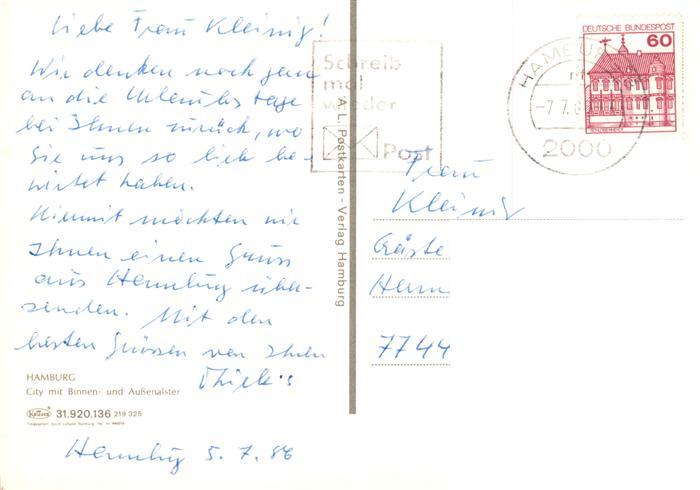 Liebe Frau Kleinig!
Wir denken noch gern
an die Urlaubstage
bei Ihnen zurück, wo
Sie uns so lieb be-
wirtet haben.
Hiermit möchten wir
Ihnen einen Gruss
aus Hamburg über-
senden. Mit den
besten Grüssen von Ihren
Thiele's
HAMBURG
City mit Binnen- und Außenalster
Krüger 31.920.136 219 325
Hamburg 5.7.86
A. L. Postkarten - Verlag Hamburg
Schreib
mal
wieder
Post
HAMBURG
-7.7.8
2000
DEUTSCHE BUNDESPOST
60
Frau
Kleinig
Gäste
Heim
7744